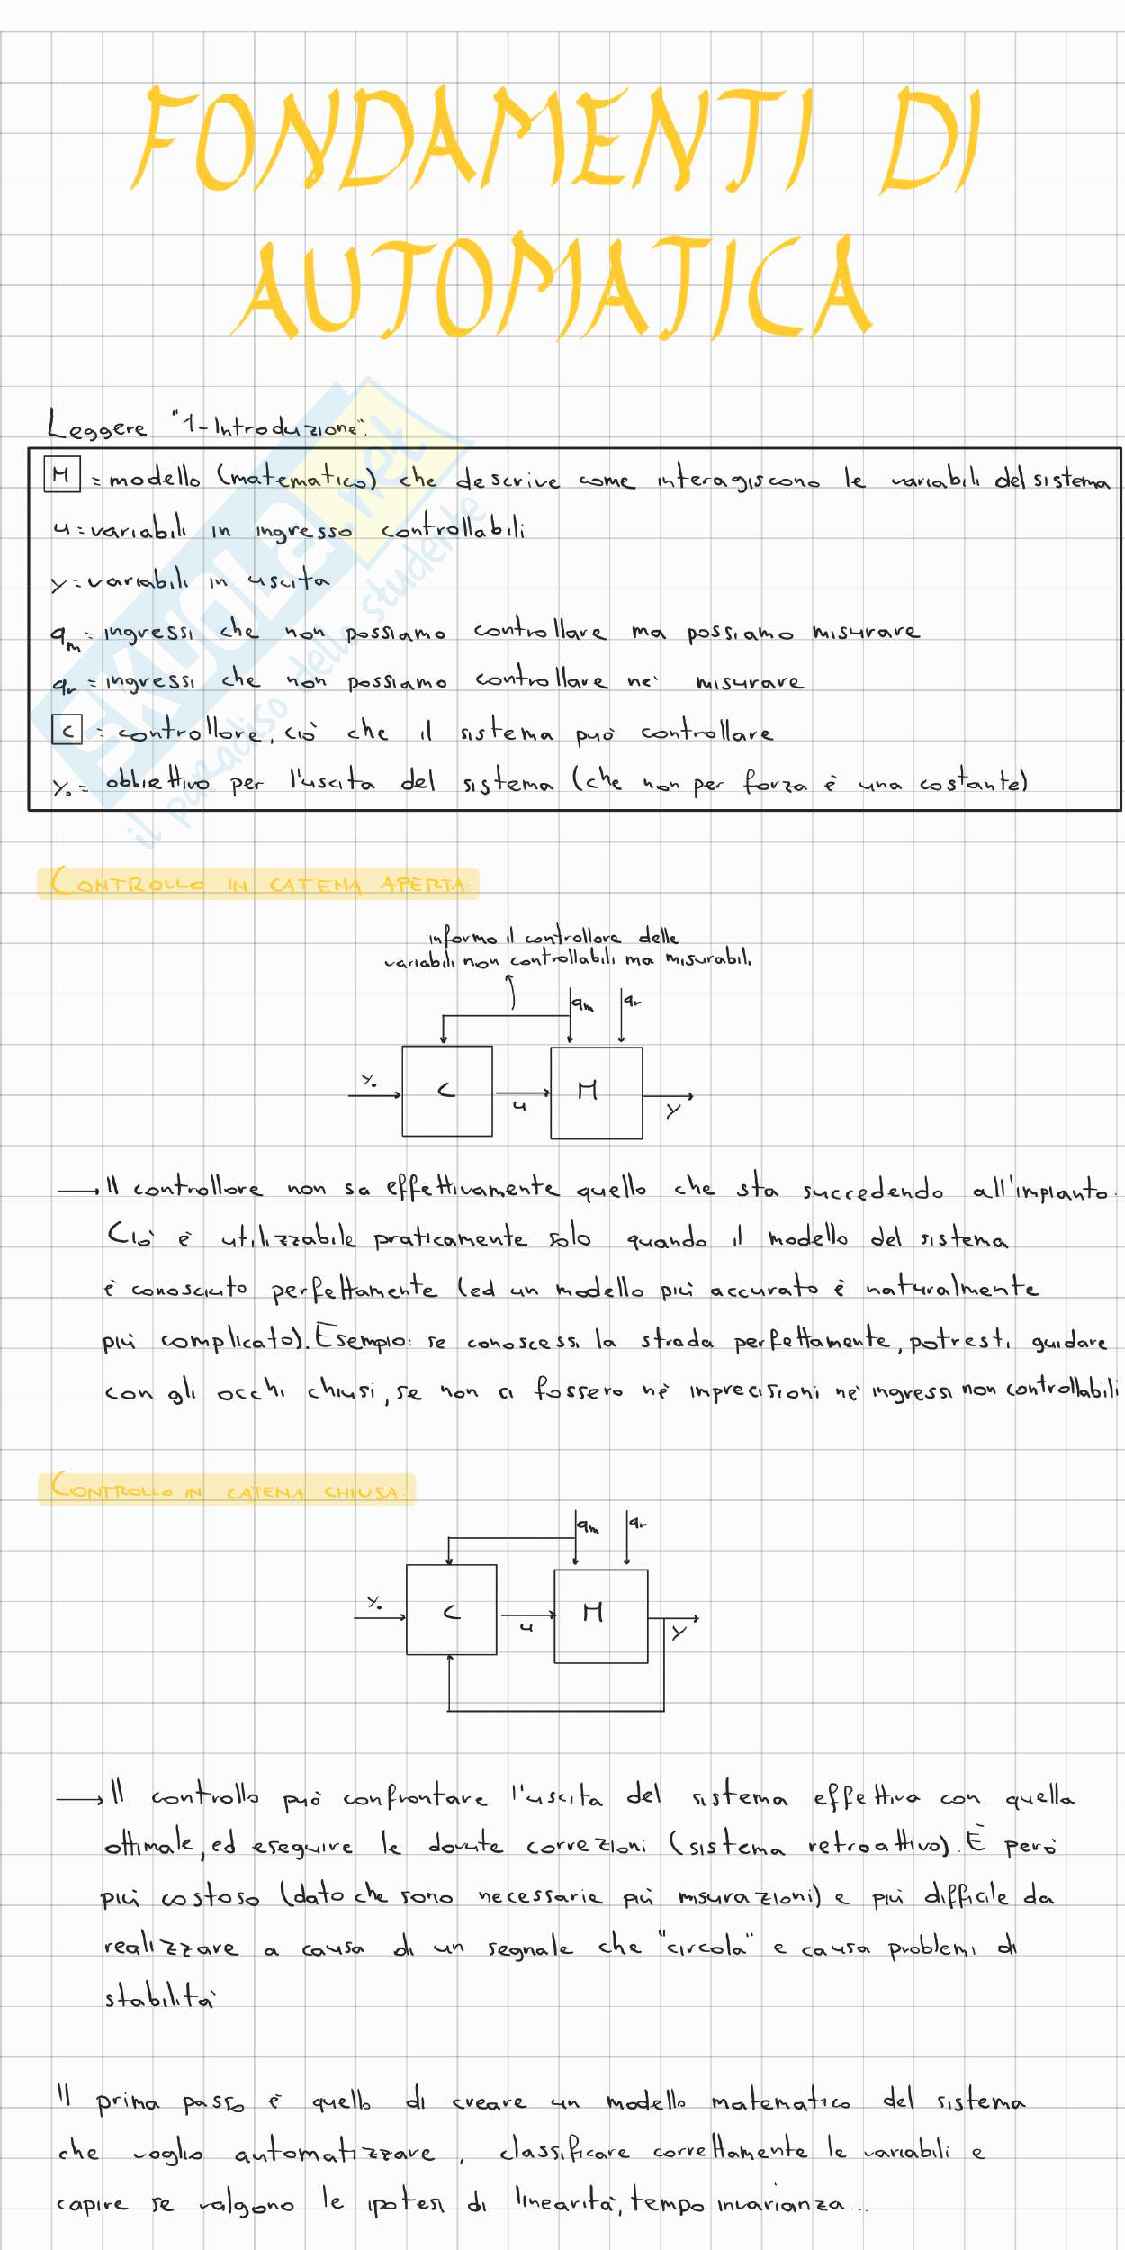 FONDAMENTI DI
AUTOMATICA
Leggere "1-Introduzione".
M = modello (matematico) che descrive come interagiscono le variabili del sistema
u = variabili in ingresso controllabili
y = variabili in uscita
qm = ingressi che non possiamo controllare ma possiamo misurare
qr = ingressi che non possiamo controllare nè misurare
C = controllore, ciò che il sistema può controllare
y₀ = obbiettivo per l'uscita del sistema (che non per forza è una costante)
SKUOLA.net
il paradiso dello studente
CONTROLLO IN CATENA APERTA:
informo il controllore delle
variabili non controllabili ma misurabili
qm qr
y₀ C u M y
→ Il controllore non sa effettivamente quello che sta succedendo all'impianto.
Ciò è utilizzabile praticamente solo quando il modello del sistema
è conosciuto perfettamente (ed un modello più accurato è naturalmente
più complicato). Esempio: se conoscessi la strada perfettamente, potresti guidare
con gli occhi chiusi, se non ci fossero nè imprecisioni nè ingressi non controllabili
CONTROLLO IN CATENA CHIUSA:
qm qr
y₀ C u M y
→ Il controllo può confrontare l'uscita del sistema effettiva con quella
ottimale, ed eseguire le dovute correzioni (sistema retroattivo). È però
più costoso (dato che sono necessarie più misurazioni) e più difficile da
realizzare a causa di un segnale che "circola" e causa problemi di
stabilità
Il primo passo è quello di creare un modello matematico del sistema
che voglio automatizzare, classificare correttamente le variabili e
capire se valgono le ipotesi di linearità, tempo invarianza...